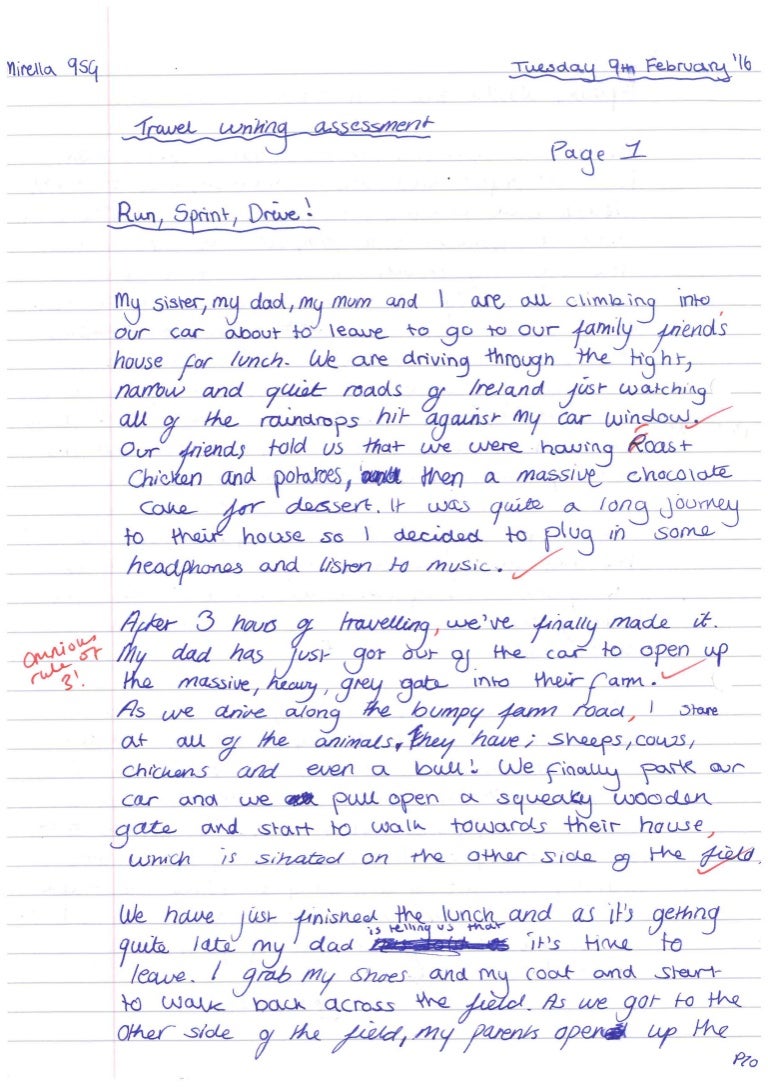 Mirella 9SG
Tuesday 9th February '16
Travel writing assessment
Page 1
Run, Sprint, Drive!
My sister, my dad, my mum and I are all climbing into
our car about to leave to go to our family friend's
house for lunch. We are driving through the tight,
narrow and quiet roads of Ireland just watching
all of the raindrops hit against my car window.
Our friends told us that we were having Roast
Chicken and potatoes, then a massive chocolate
cake for dessert. It was quite a long journey
to their house so I decided to plug in some
headphones and listen to music.
After 3 hours of travelling, we've finally made it.
omnious
rule of
3!
My dad has just got out of the car to open up
the massive, heavy, grey gate into their farm.
As we drive along the bumpy farm road, I stare
at all of the animals, they have; sheeps, cows,
chickens and even a bull! We finally park our
car and we pull open a squeaky wooden
gate and start to walk towards their house,
which is situated on the other side of the field.
We have just finished the lunch and as it's getting
quite late my dad is telling us that it's time to
leave. I grab my shoes and my coat and start
to walk back across the field. As we got to the
other side of the field, my parents open up the
PTO